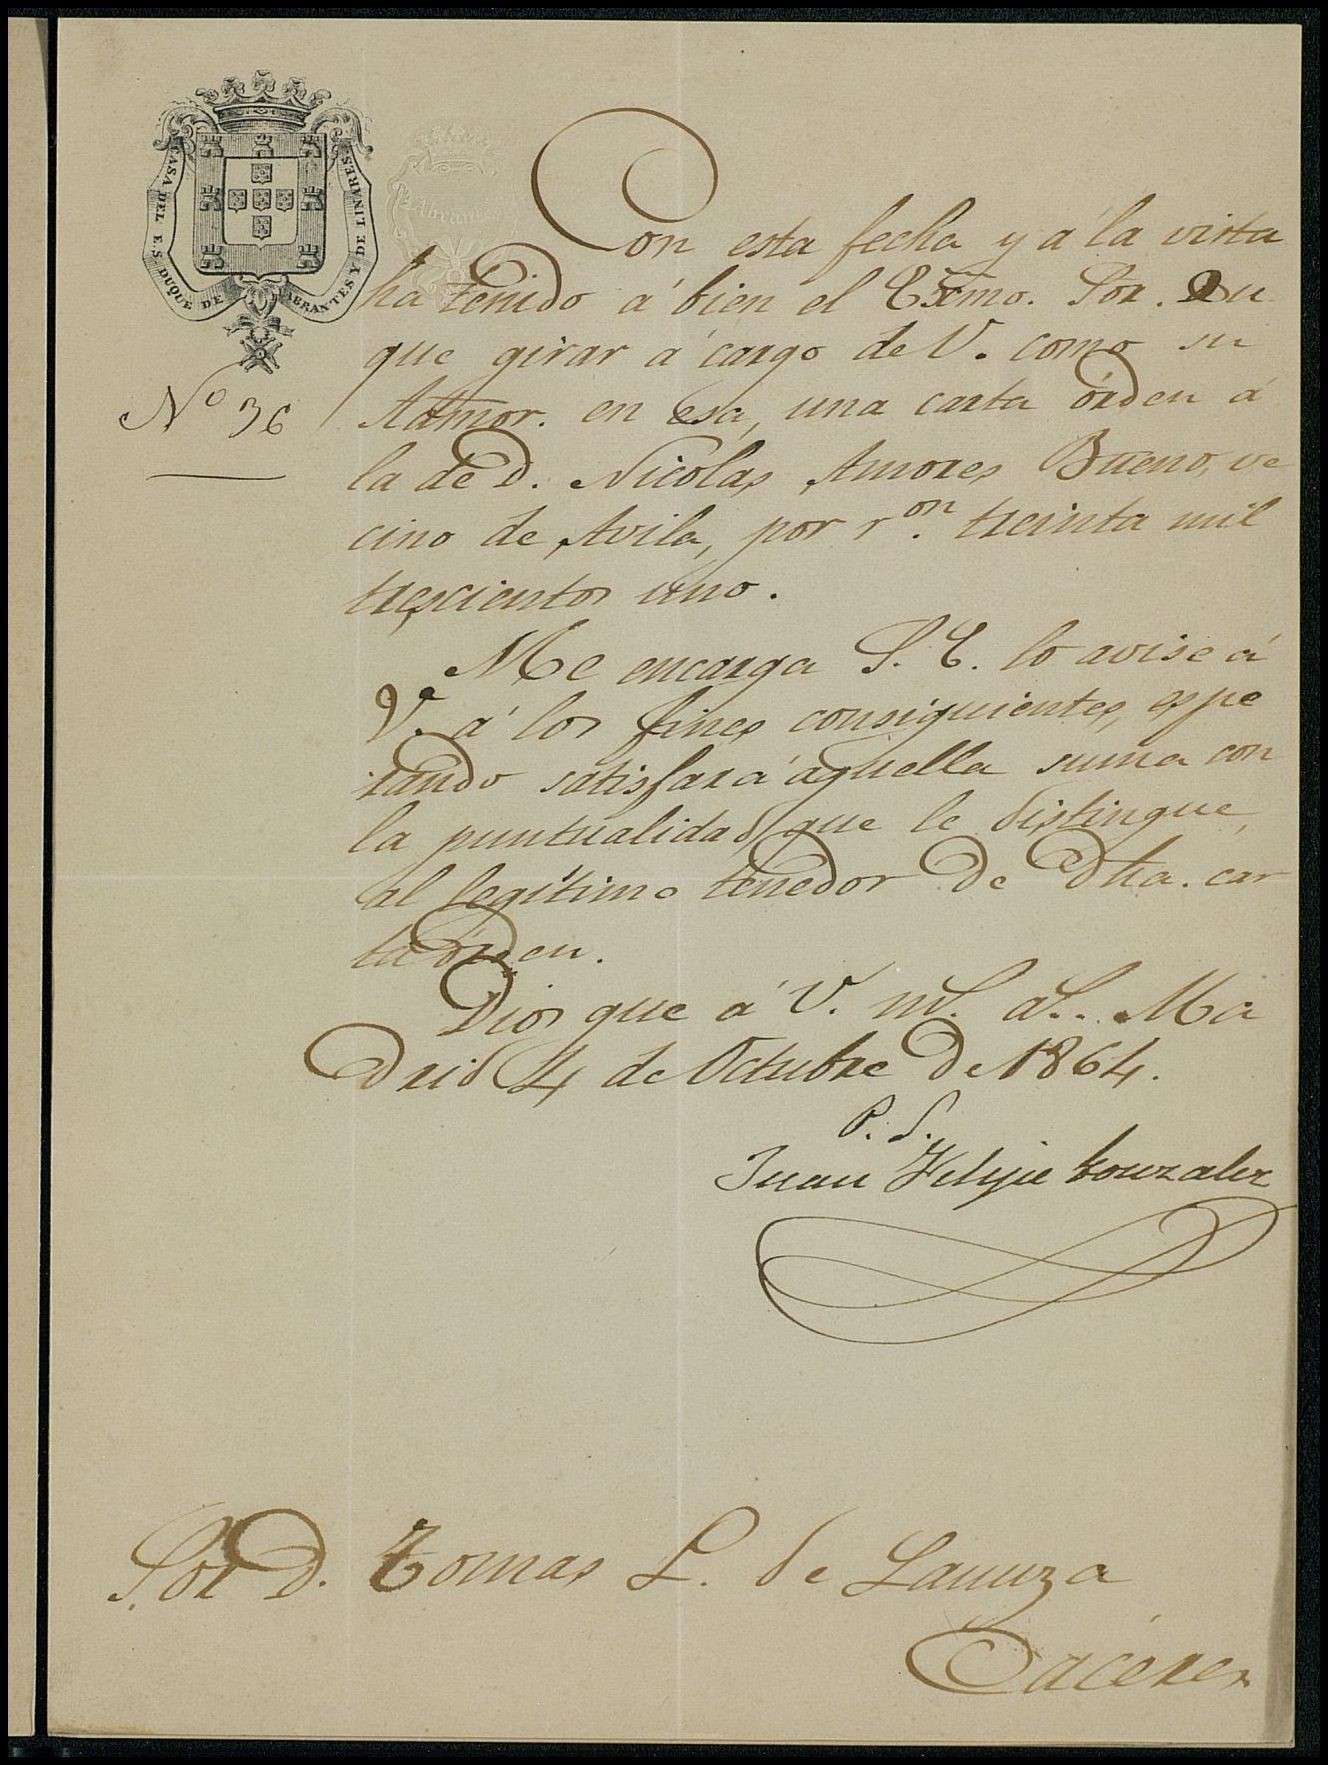 CASA DEL E.S. DUQUE DE ABRANTES Y DE LINARES.
Con esta fecha y á la vista
ha tenido á bien el Exmo. Sor. Du
que girar á cargo de V. como su
Admor. en esa, una carta órden á
la de D. Nicolas Amores Bueno, ve
cino de Avila, por r.on treinta mil
trescientos uno.
Nº 36
Me encarga S. E. lo avise á
V. á los fines consiguientes, espe
rando satisfará aquella suma con
la puntualidad que le distingue,
al legítimo tenedor de dha. car
ta órden.
Dios gue á V. ms. as. Ma
drid 4 de Octubre de 1864.
P. S.
Juan Felipe Gonzalez
Sor D. Tomas L. de Lanuza
Cáceres